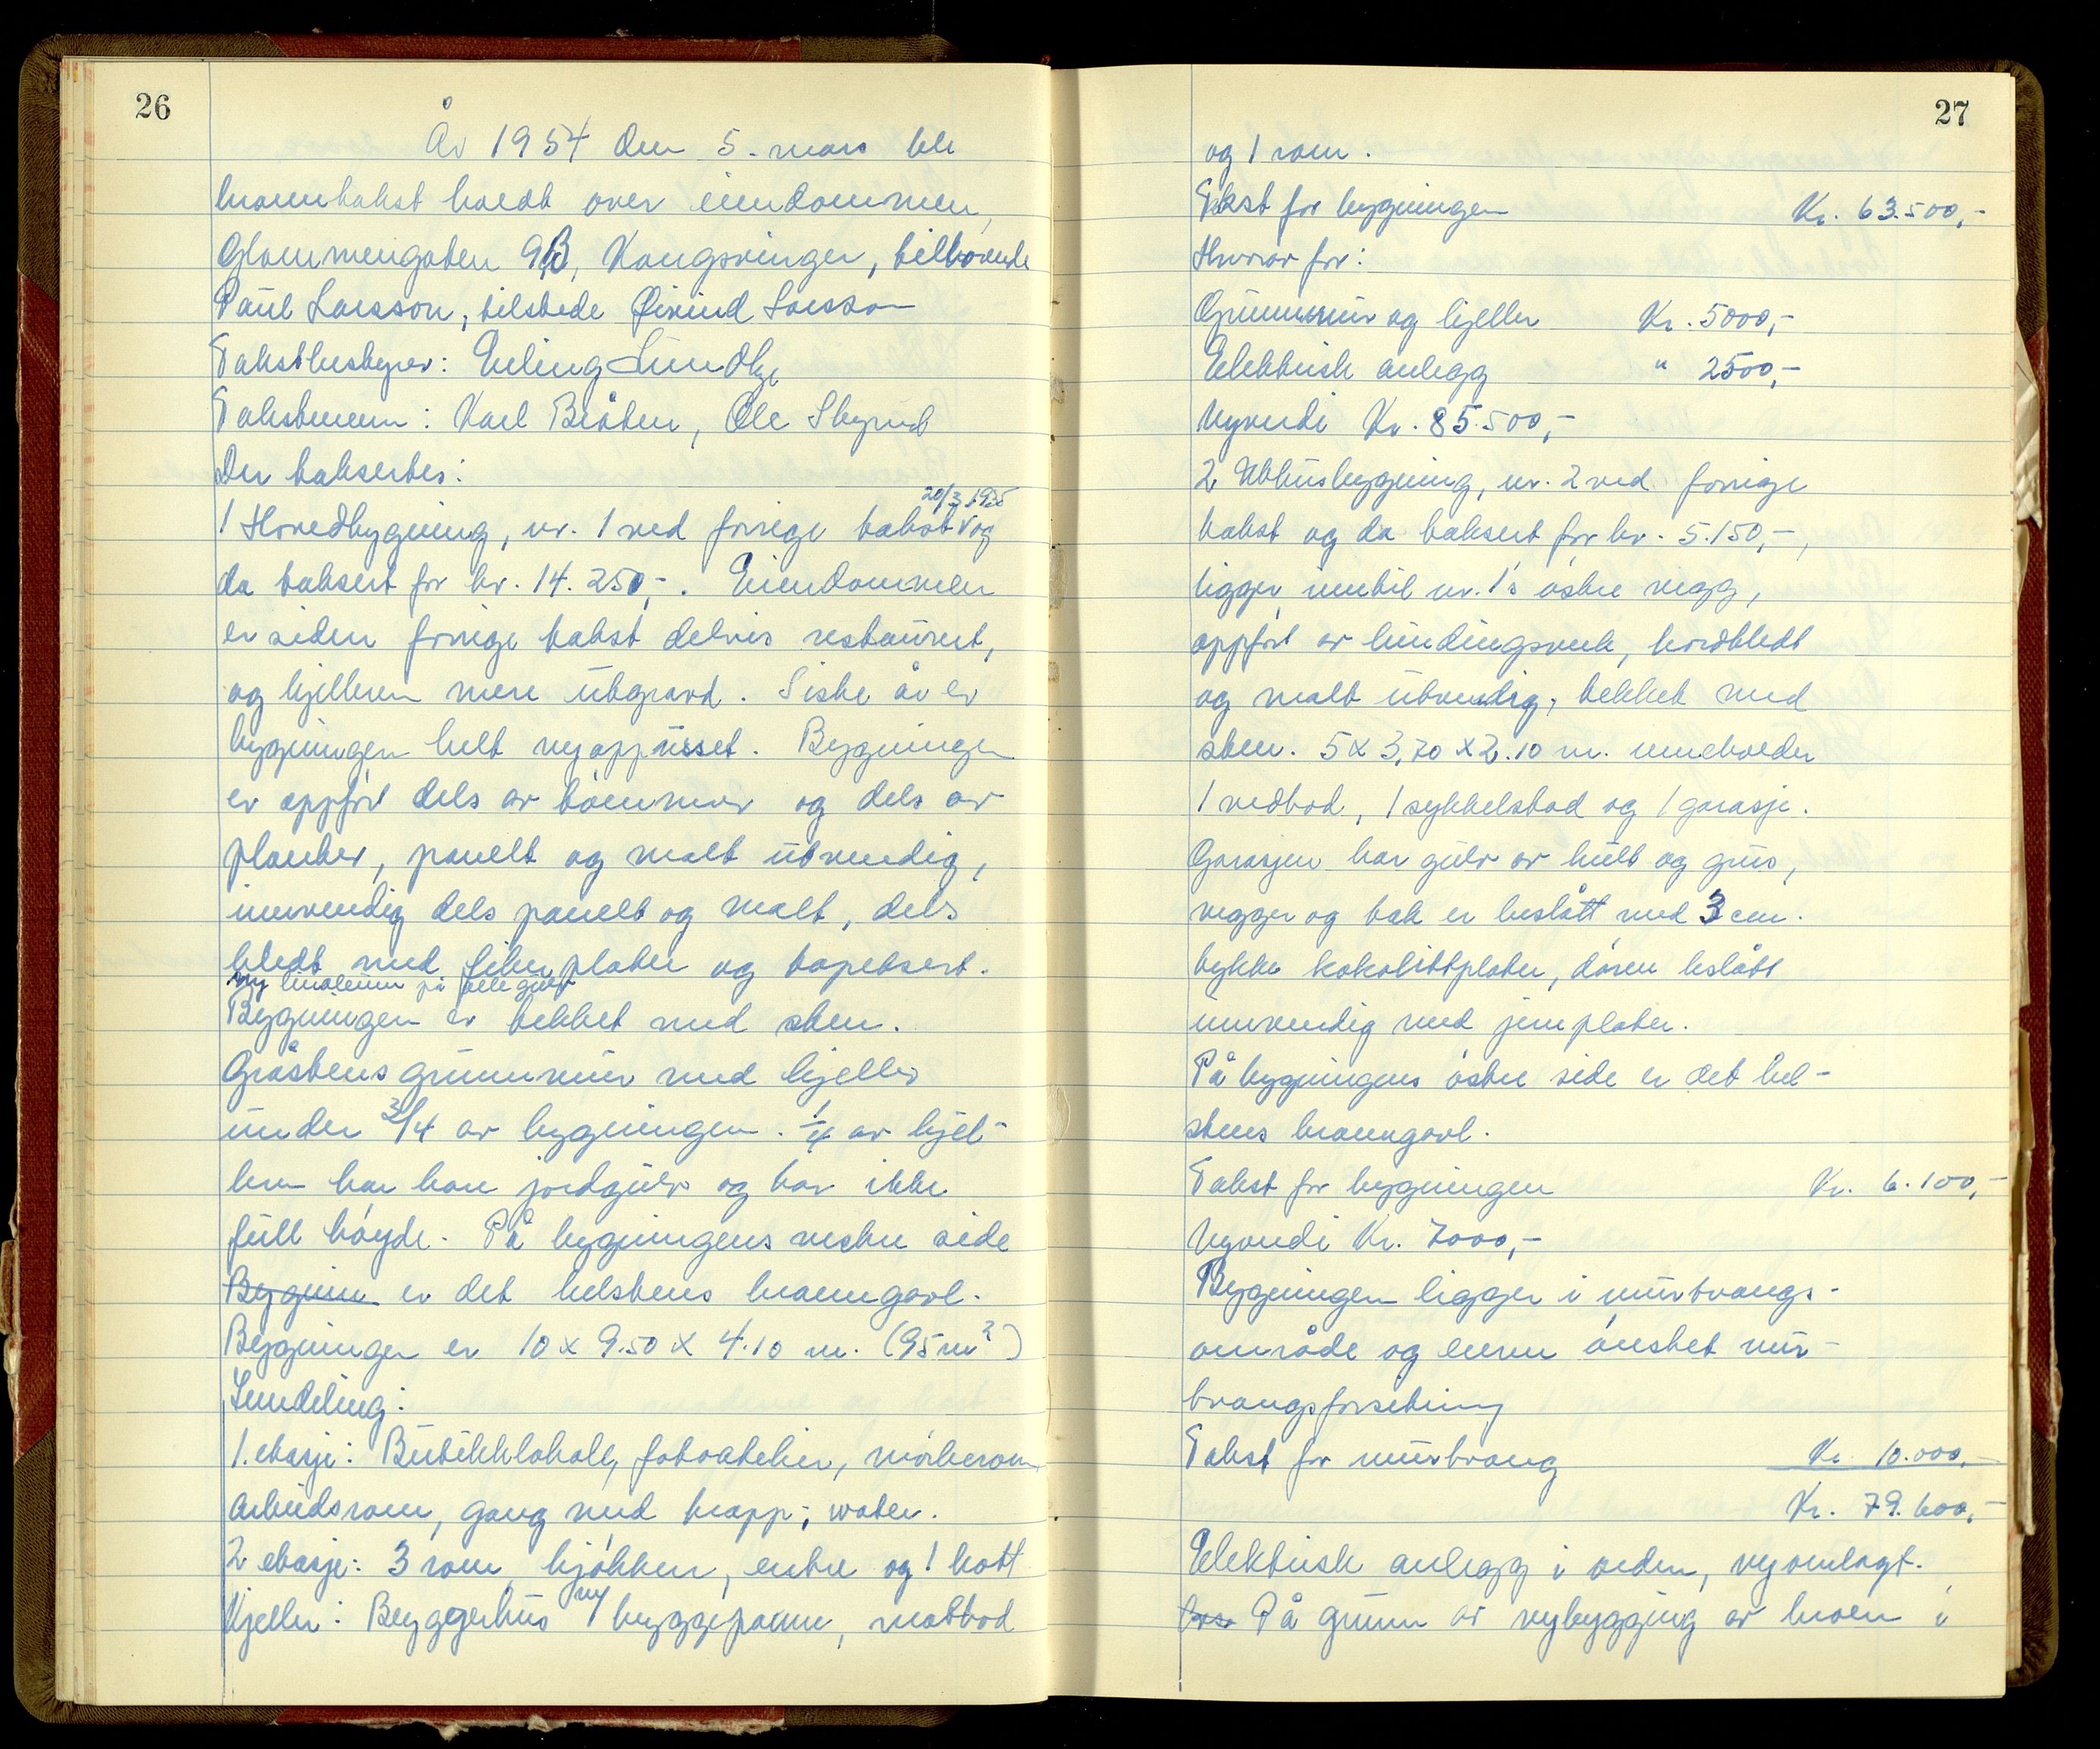 26
År 1954 den 5. mars ble
branntakst holdt over eiendommen,
Glommengaten 9B, Kongsvinger, tilhørende
Paul Larsson, tilstede Øivind Larsson
Takstbestyrer: Erling Lundby
Takstmenn: Karl Bråten, Ole Skyrud
Der taksertes:
20/3 1925
1 Hovedbygning, nr. 1 ved forrige takst V og
da taksert for kr. 14.250,-. Eiendommen
er siden forrige takst delvis restaurert,
og kjelleren mere utgravd. Siste år er
bygningen helt nyoppusset. Bygningen
er oppført dels av tømmer og dels av
planker, panelt og malt utvendig,
innvendig dels panelt og malt, dels
kledt med fiberplater og tapetsert.
ny linoleum på alle gulv
Bygningen er tekket med sten.
Gråstens grunnmur med kjeller
under 3/4 av bygningen. 1/4 av kjel-
leren har bare jordgulv og har ikke
full høyde. På bygningens vestre side
Bygninn er det helstens branngavl.
Bygningen er 10 x 9.50 x 4.10 m. (95 m²)
Inndeling:
1. etasje: Butikklokale, fotoatelier, mørkerom
arbeidsrom, gang med trapp, water.
2 etasje: 3 rom, kjøkken, entre og 1 kott
Kjeller: Bryggerhus ny bryggepanne, matbod
27
og 1 rom.
Takst for bygningen Kr. 63.500,-
Hvorav for:
Grunnmur og kjeller Kr. 5000,-
Elektrisk anlegg " 2500,-
Nyverdi Kr. 85.500,-
2 Uthusbygning, nr. 2 ved forrige
takst og da taksert for kr. 5.150,-,
ligger inntil nr. 1's østre vegg,
oppført av bindingsverk, bordkledt
og malt utvendig, tekket med
sten. 5 x 3,70 x 2.10 m. inneholder
1 vedbod, 1 sykkelstad og 1 garasje.
Garasjen har gulv av kult og grus,
vegger og tak er beslått med 3 cm.
tykke kokolittplater, døren beslått
innvendig med jernplater.
På bygningens østre side er det hel-
stens branngavl.
Takst for bygningen Kr. 6.100,-
Nyverdi Kr. 7000,-
Bygningen ligger i murtvangs-
område og eieren ønsket mur-
tvangsforsetring
Takst for murtvang Kr. 10.000,-
Kr. 79.600,-
Elektrisk anlegg i orden, nyomlagt.
På grunn av nybygging av broen i